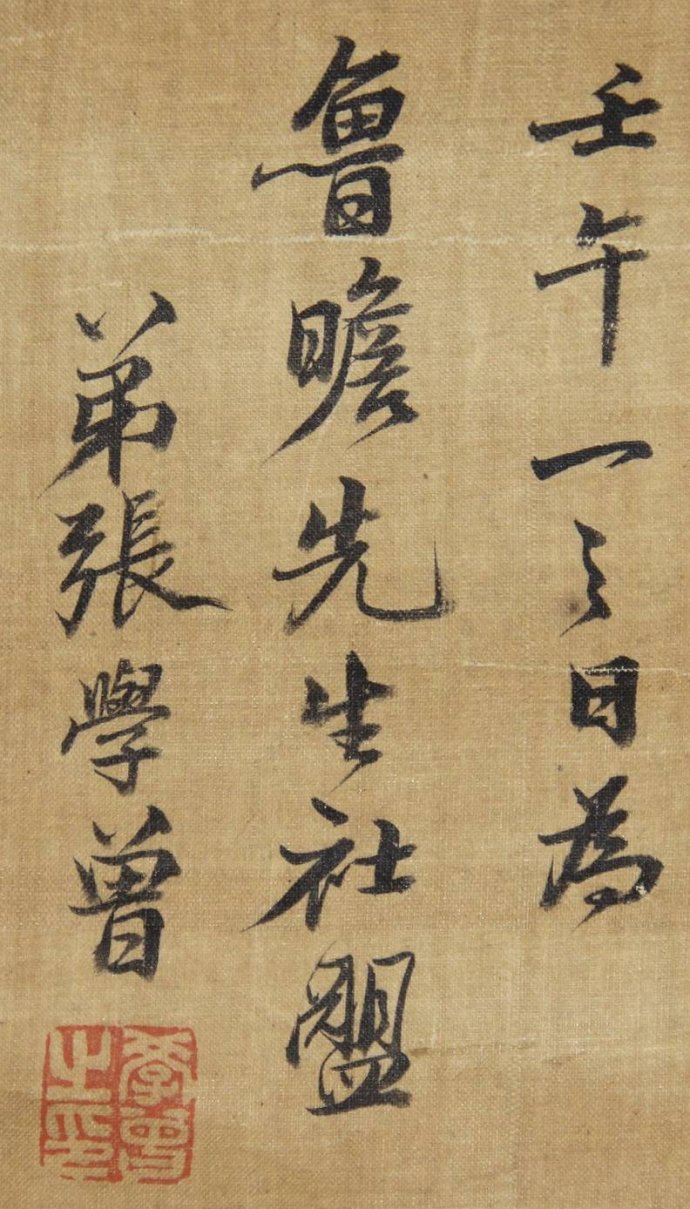 壬午一之日為
魯瞻先生社盟
弟張學曾
學曾之印